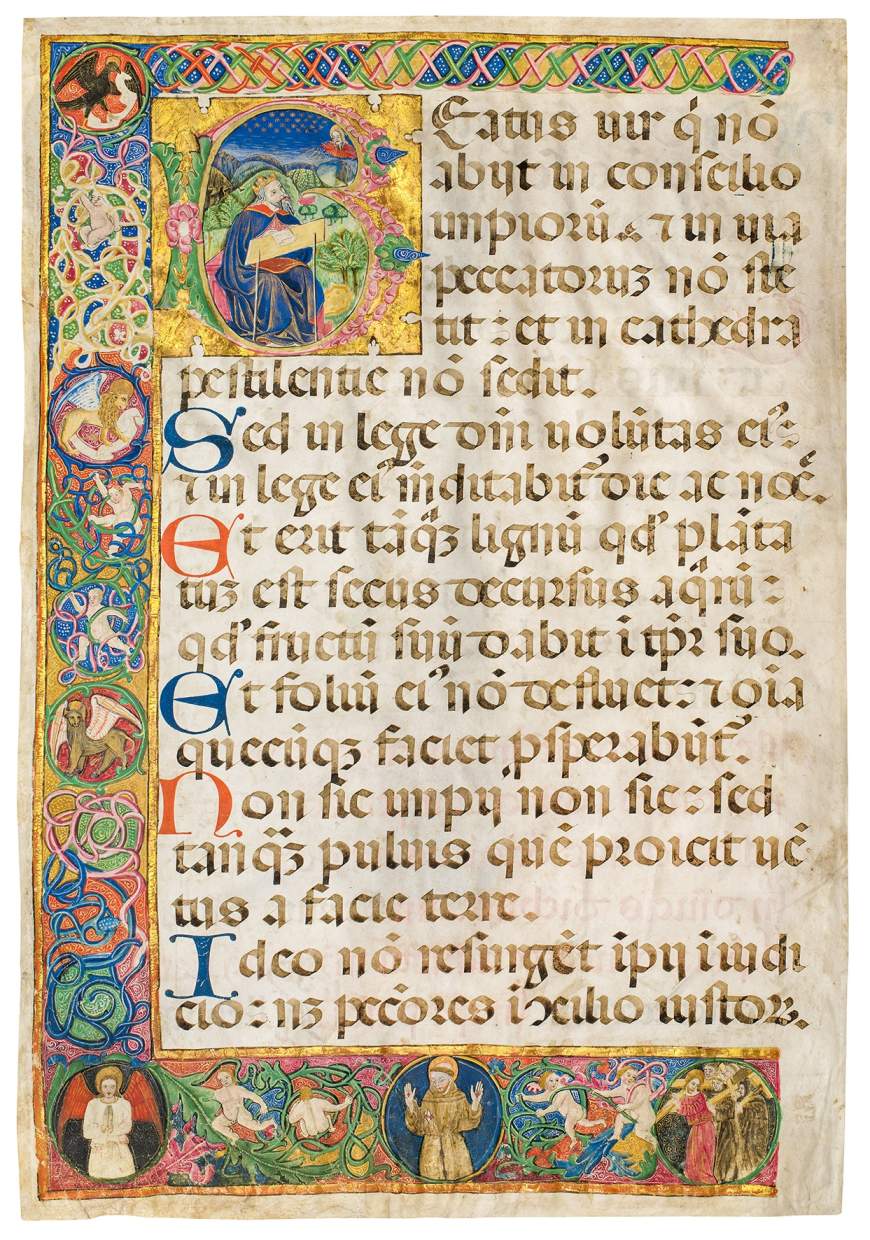 BEatus uir q̇ nō
abijt in conscilio
impiorū. ⁊ in uia
peccatoruʒ nō ste
tit : et in cathedra
pestilentie nō sedit.
Sed in lege dn̄i uolūtas eiꝰ:
⁊ in lege eiꝰ m̄ditabit᷑ die ac noc̄.
Et erit tāqᷓʒ lignū qd' plāta
tuʒ est secus decursus aqᷓrū :
qd' fructū suū dabit ī tp̄r suo.
Et foliū eiꝰ nō defluet : ⁊ oīa
quecūqʒ faciet ꝓsperabūt᷑.
Non sic impij non sic : sed
tanqᷓʒ puluis quē proicit uē
tus a facie terre.
Ideo nō resurgēt īpij ī iudi
cio : nʒ pecōres ī ↄcilio iustoꝝ.